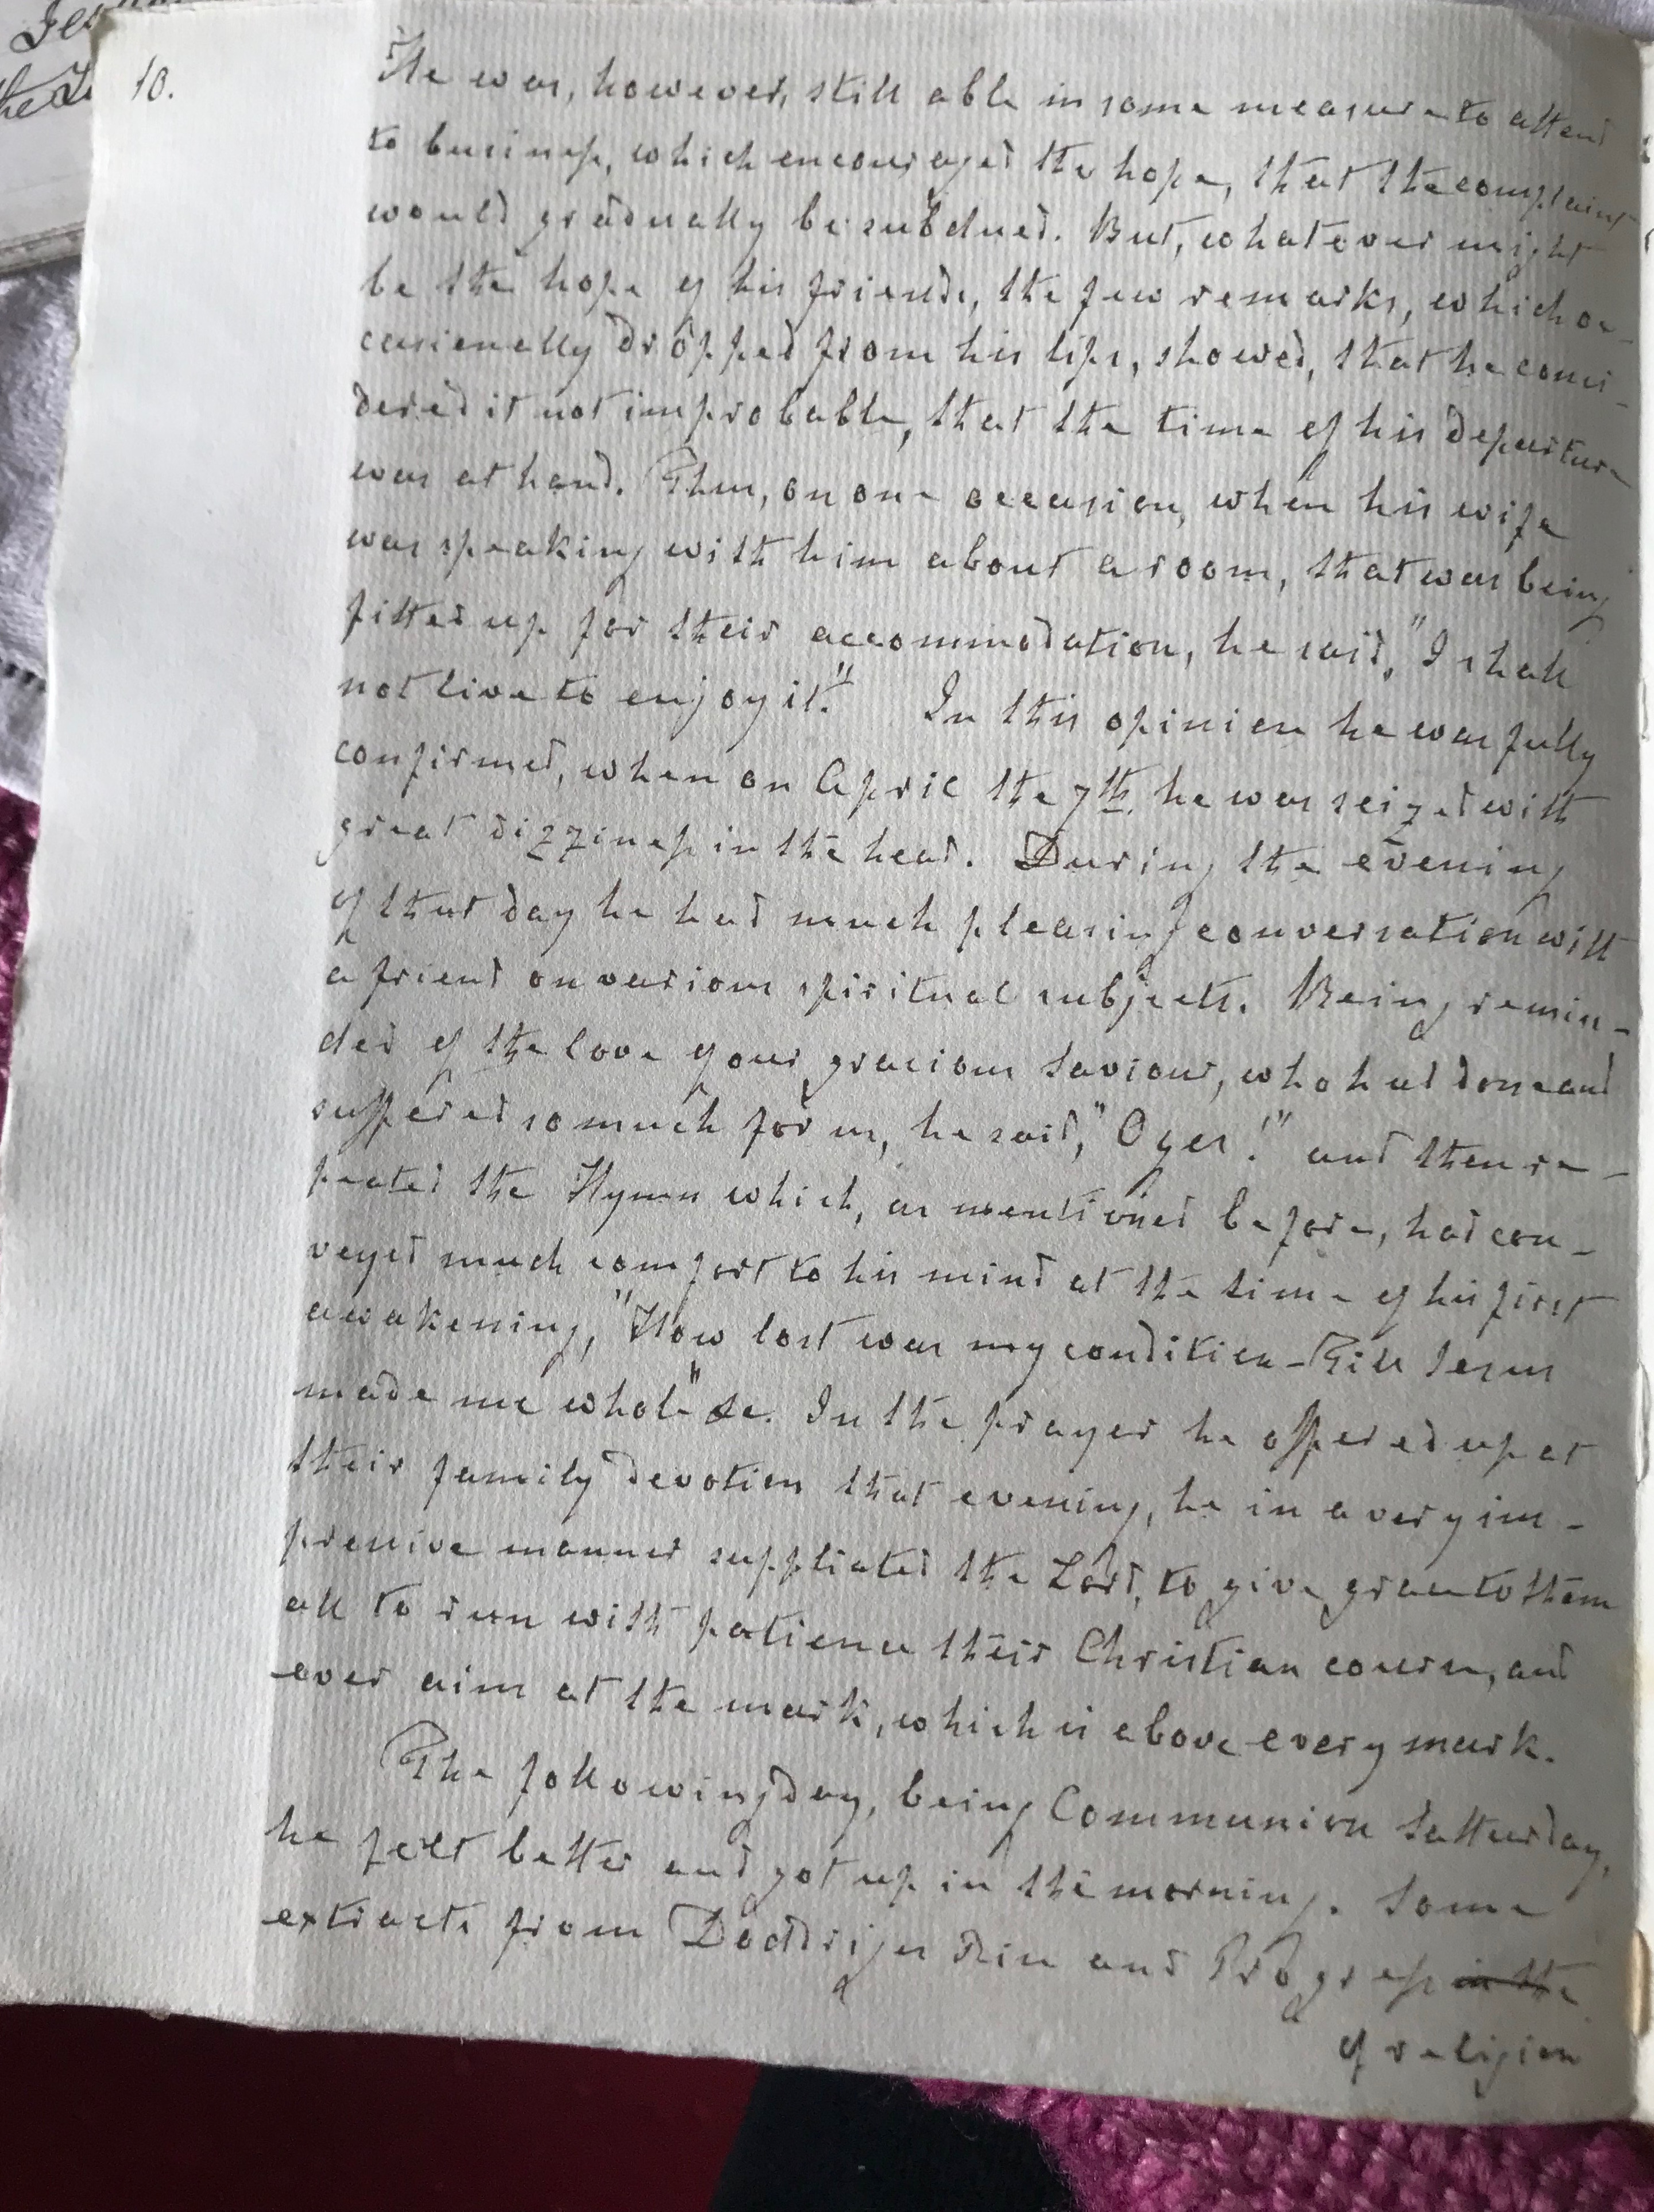 10.
He was, however, still able in some measure to attend
to business, which encouraged the hope, that the complaint
would gradually be subdued. But, whatever might
be the hope of his friends, the few remarks, which oc-
casionally dropped from his lips, showed, that he consi-
dered it not improbable, that the time of his departure
was at hand. Thus, on one occasion, when his wife
was speaking with him about a room, that was being
fitted up for their accommodation, he said, "I shall
not live to enjoy it." In this opinion he was fully
confirmed, when on April the 7th. he was seized with
great dizziness in the head. During the evening
of that day he had much pleasing conversation with
a friend on various spiritual subjects. Being remin-
ded of the love of our gracious Saviour, who had done and
suffered so much for us, he said, "O yes!" and then re-
peated the Hymn which, as mentioned before, had con-
veyed much comfort to his mind at the time of his first
awakening, "How lost was my condition - Till Jesus
made me whole" &c. In the prayer he offered up at
their family devotion that evening, he in a very im-
pressive manner suppliated the Lord, to give grace to them
all to run with patience their Christian course, and
ever aim at the mark, which is above every mark.
The following day, being Communion Satturday,
he felt better and got up in the morning. Some
extracts from Doddriges Rise and Progress in the
of religion